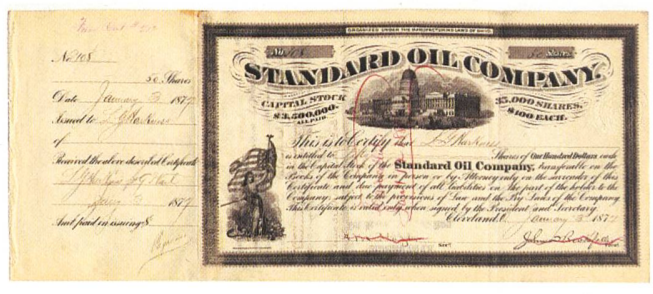 No 2108
50 Shares
Date January 3 1877
Issued to L G Harkness
of
Received the above described Certificate
1877
And paid in issuing $
ORGANIZED UNDER THE MANUFACTURING LAWS OF OHIO.
No.
Shares
STANDARD OIL COMPANY.
CAPITAL STOCK
$3,500,000.
ALL PAID.
35,000 SHARES.
$100 EACH.
This is to Certify that L G Harkness
is entitled to Shares of One Hundred Dollars each
in the Capital Stock of the Standard Oil Company, transferable on the
Books of the Company in person or by Attorney only on the surrender of this
Certificate and due payment of all liabilities on the part of the holder to the
Company; subject to the provisions of Law and the By-Laws of the Company.
This Certificate is valid only when signed by the President and Secretary.
Cleveland, O. January 3 1877
Sec'y
John D Rockefeller